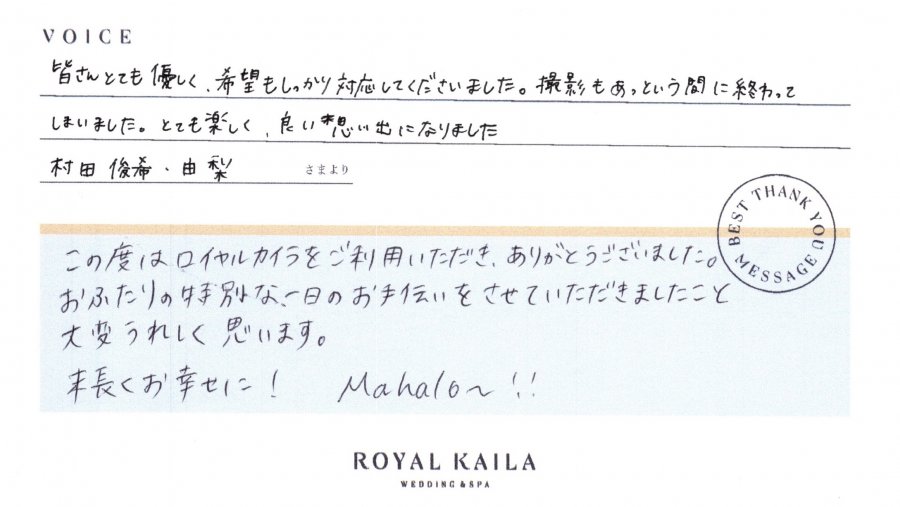 VOICE
皆さんとても優しく、希望もしっかり対応してくださいました。撮影もあっという間に終わって
しまいました。とても楽しく、良い想い出になりました
村田俊希・由梨 さまより
BEST THANK YOU MESSAGE
この度はロイヤルカイラをご利用いただき、ありがとうございました。
おふたりの特別な、一日のお手伝いをさせていただきましたこと
大変うれしく思います。
末長くお幸せに! Mahalo~!!
ROYAL KAILA
WEDDING & SPA